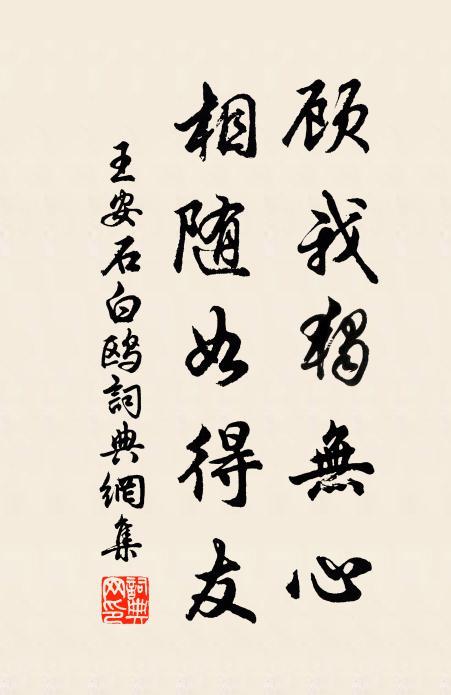 顾我獨無心
相随如得友
王安石白鸥詞典網集
詞典網印